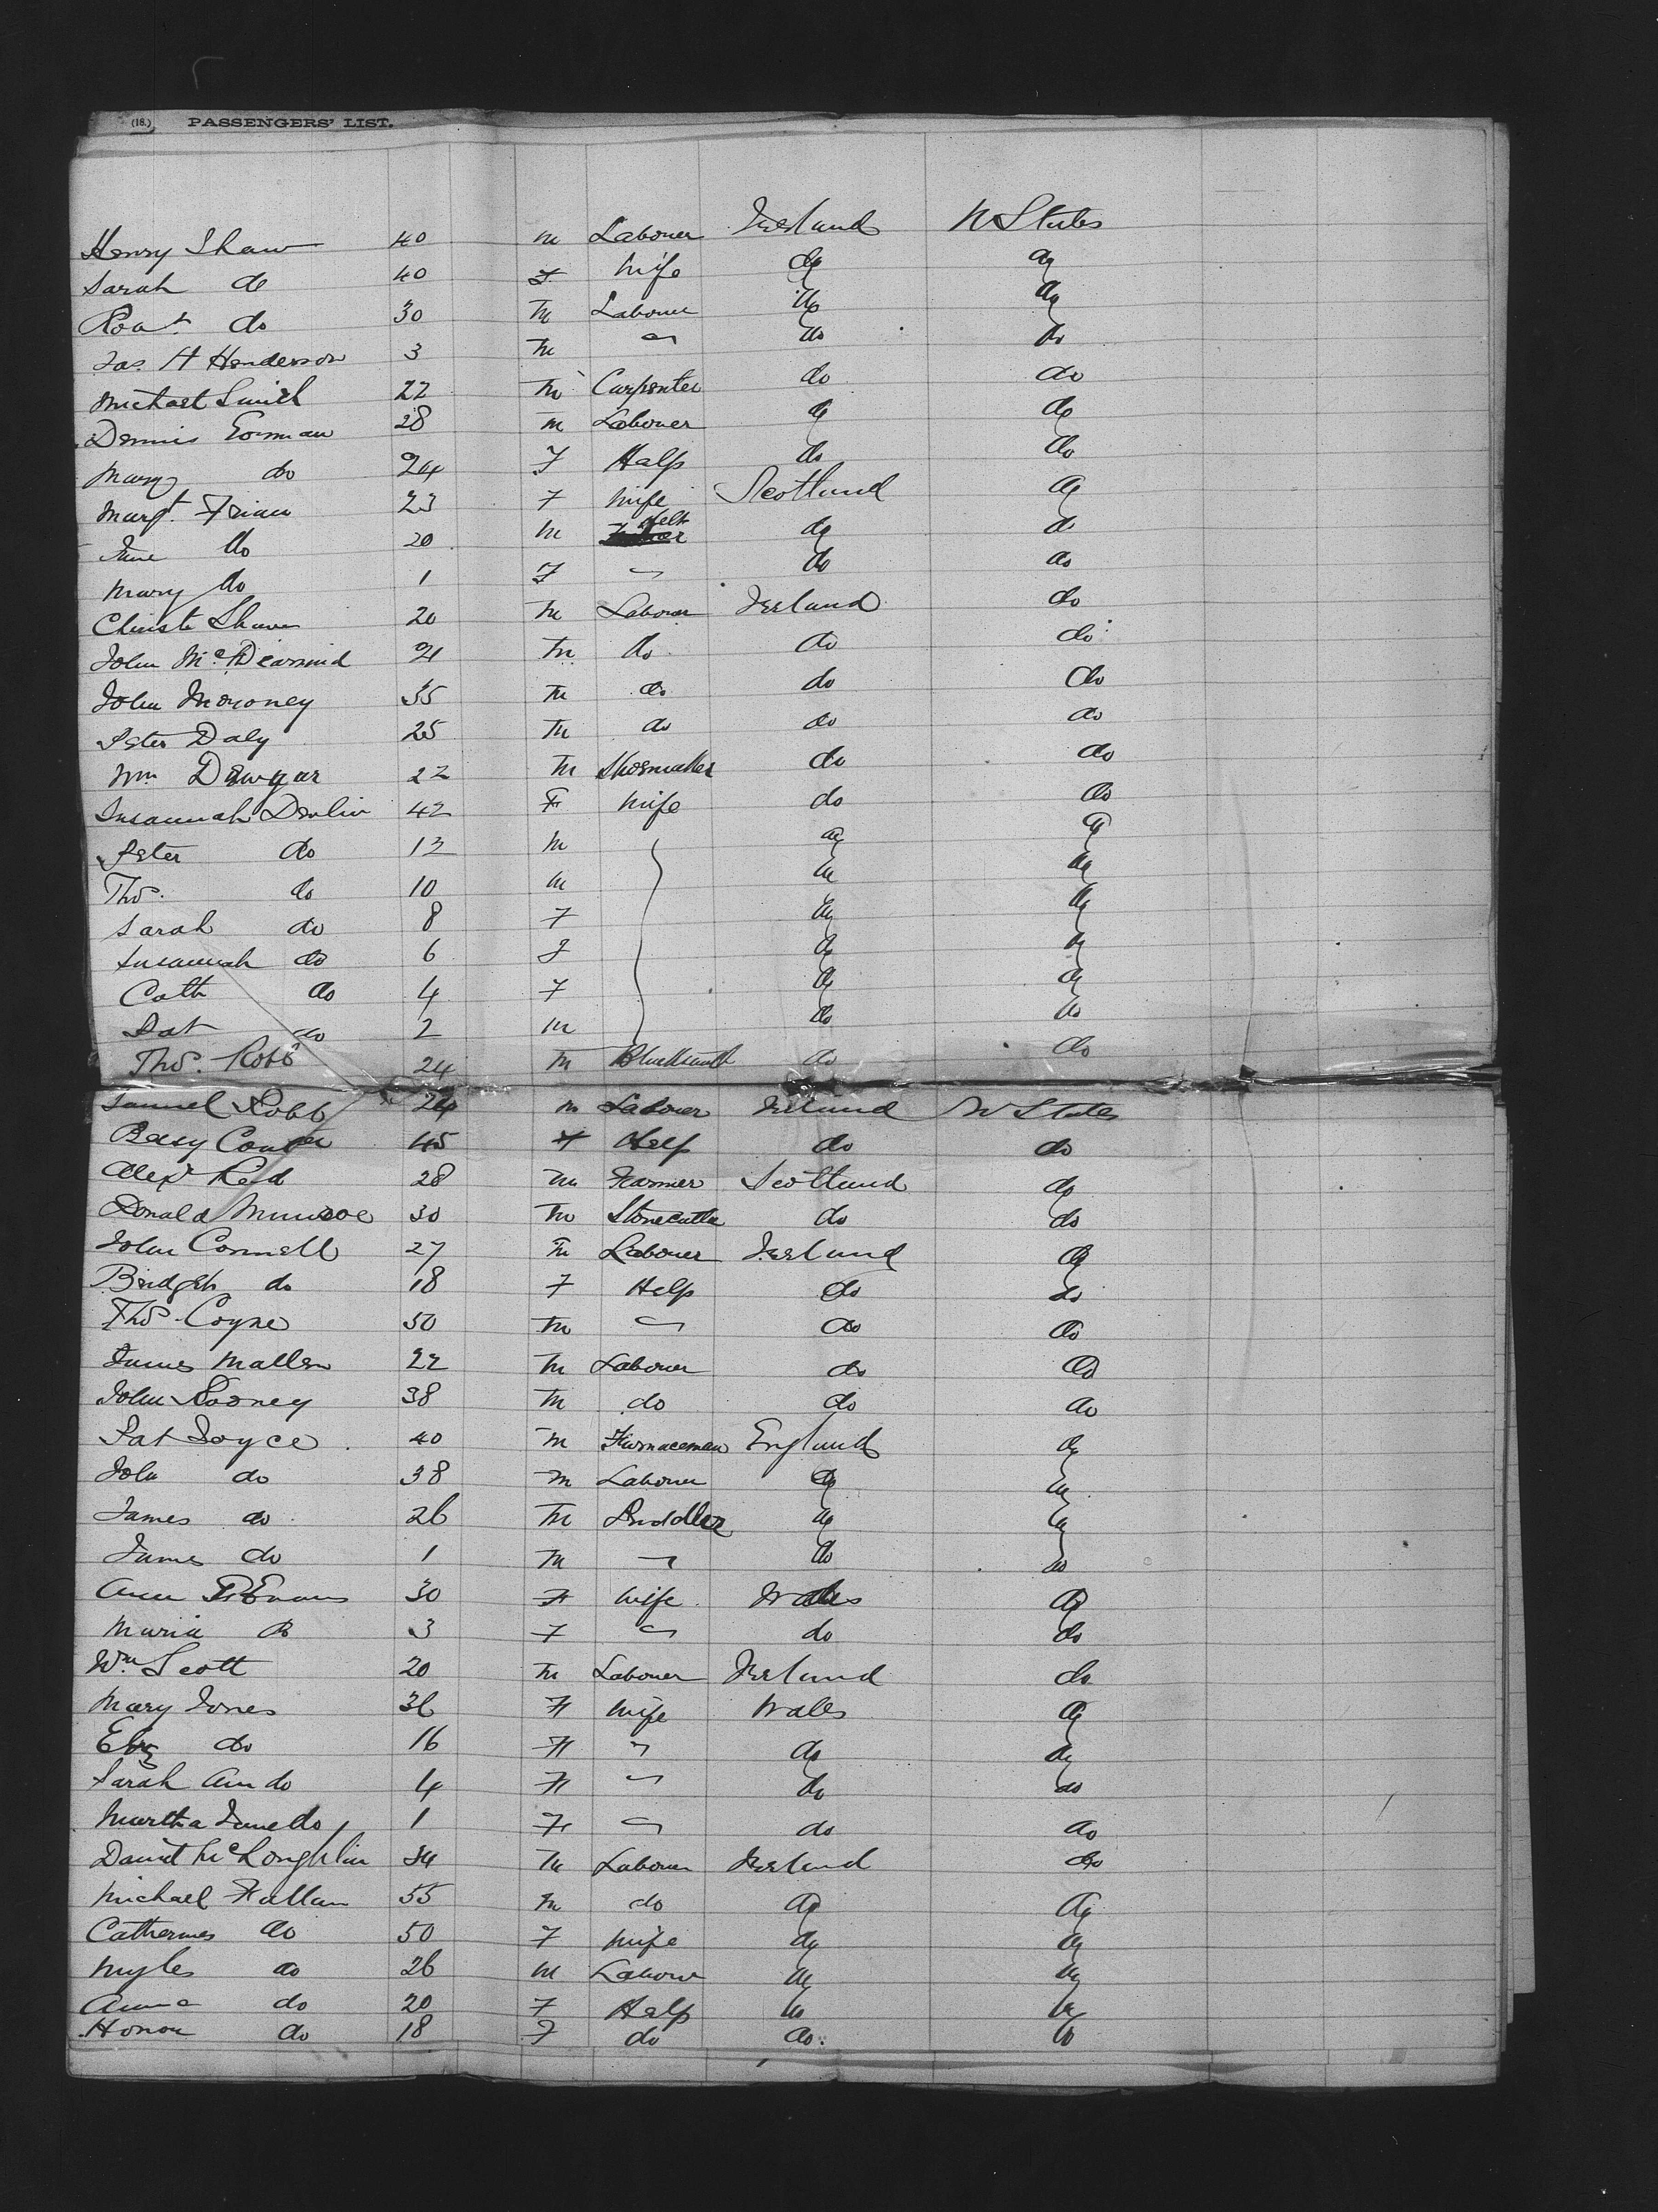 (18.) PASSENGERS' LIST.
Henry Shaw 40 m Labourer Ireland U States
Sarah do 40 F Wife do do
Robt. do 30 m Labourer do do
Jas. H Henderson 3 m " do do
Michael Smith 22 m Carpenter do do
Dennis Gorman 28 m Labourer do do
Mary do 24 F Help do do
Margt. 23 F Wife Scotland do
Jane do 20 m Help do do
Mary do 1 F " do do
Christr Shaw 20 m Labourer Ireland do
John McDearmid 21 m do do do
John Moroney 35 m do do do
Peter Daly 25 m do do do
Wm 22 m Shoemaker do do
Susannah Devlin 42 F Wife do do
Peter do 12 m do do
Thos. do 10 m do do
Sarah do 8 F do do
Susannah do 6 F do do
Cath do 4 F do do
Pat do 2 m do do
Thos. Robb 24 m Blacksmith do do
Samuel Robb 24 m Labourer Ireland U States
Betsy 45 F Help do do
Alexr Reid 28 m Farmer Scotland do
Donald Munroe 30 m Stonecutter do do
John Connell 27 m Labourer Ireland do
Bridget do 18 F Help do do
Thos. Coyne 50 m " do do
James Mallen 22 m Labourer do do
John Rooney 38 m do do do
Pat Joyce 40 m Furnaceman England do
John do 38 m Labourer do do
James do 26 m Puddler do do
James do 1 m " do do
Ann Evans 30 F Wife Wales do
Maria do 3 F " do do
Wm Scott 20 m Labourer Ireland do
Mary Jones 36 F Wife Wales do
Eliz do 16 F " do do
Sarah Ann do 4 F " do do
Martha Jane do 1 F " do do
David McLoughlin 34 m Labourer Ireland do
Michael Fallan 55 m do do do
Catherine do 50 F Wife do do
Myles do 26 m Labourer do do
Anna do 20 F Help do do
Honor do 18 F do do do